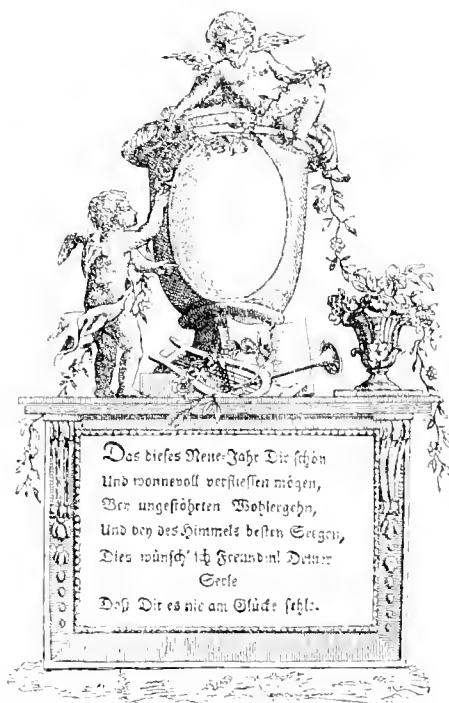 Das dieses Neue-Jahr Dir schön
Und wonnevoll verfliessen mögen,
Bey ungestöhrten Wohlergehn,
Und bey des Himmels besten Seegen,
Dies wünsch' ich Freundin! Deiner
Seele
Daß Dir es nie am Glücke fehle.